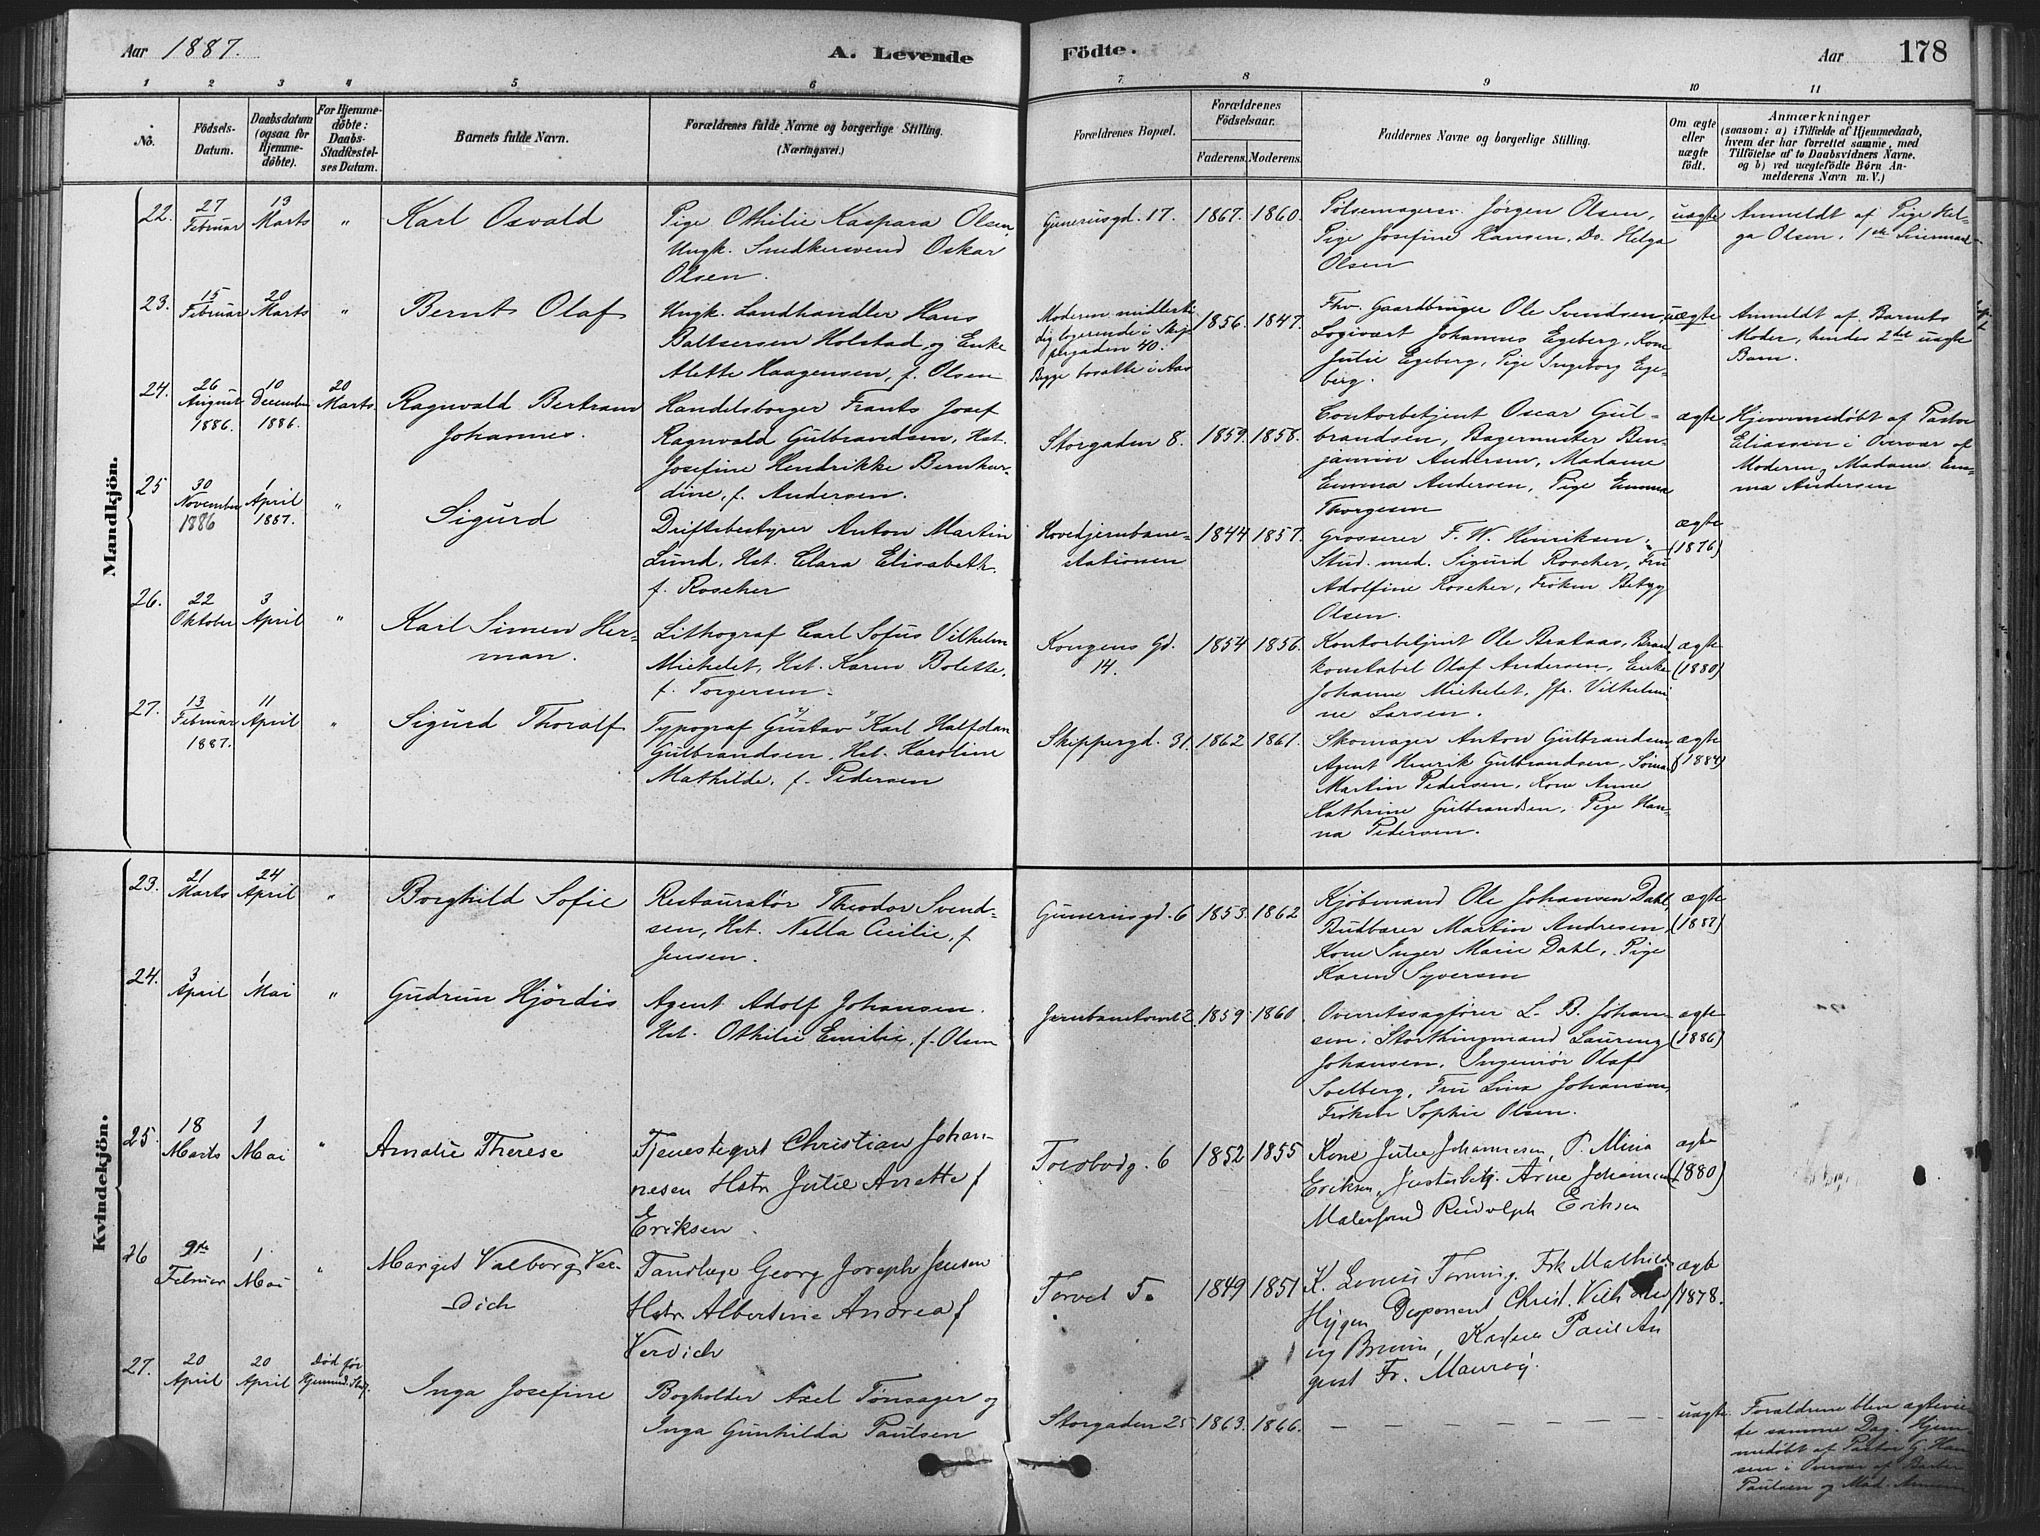 Aar 1887.
A. Levende
Födte.
Aar
178
1 2 3 4 5 6 7 8 9 10 11
No.
Födsels-Datum.
Daabsdatum (ogsaa for Hjemme-döbte).
For Hjemme-döbte: Daabs-Stadfæstel-ses Datum.
Barnets fulde Navn.
Forældrenes fulde Navne og borgerlige Stilling.
(Næringsvei.)
Forældrenes Bopæl.
Forældrenes Födselsaar.
Faderens. Moderens.
Faddernes Navne og borgerlige Stilling.
Om ægte eller uægte födt.
Anmærkninger
(saasom: a) i Tilfælde af Hjemmedaab,
hvem der har forrettet samme, med
Tilföielse af to Daabsvidners Navne.
og b) ved uægtefödte Börn An-
melderens Navn m. V.)
Mandkjön.
22. 27 Februar 13 Marts " Karl Osvald
Pige Othilie Kaspara Olsen,
Ungk. Snedkersvend Oskar
Olsen.
Gunerusgd. 17. 1867. 1860.
Pölsemager Jörgen Olsen,
Pige Josefine Hansen, Do. Helga
Olsen
uægte
Anmeldt af Pige Hel-
ga Olsen. 1ste Leiermaal
23. 15 Februar 20 Marts " Bernt Olaf
Ungk. Landhandler Hans
Baltsersen Holstad, og Enke
Alette Haagensen, f. Olsen
Moderen midlerti
dig logerende i Skip
pergaden 40.
Begge bosatte i Aas
1856. 1847.
Fhv. Gaardbruger Ole Svendsen,
Logivært Johannes Egeberg, Kone
Julie Egeberg, Pige Ingeborg Ege-
berg.
uægte
Anmeldt af Barnets
Moder, hendes 2det uægte
Barn.
24. 26 August 1886. 10 December 1886. 20 Marts.
Ragnvald Bertram
Johannes.
Handelsborger Frants Josef
Ragnvald Gulbrandsen, Hst.
Josefine Hendrikke Bernhar-
dine, f. Andersen.
Storgaden 8. 1859. 1858.
Contorbetjent Oscar Gul-
brandsen, Bagermester Ben-
jamin Andersen, Madame
Emma Andersen, Pige Emma
Thorgesen
ægte
Hjemmedöbt af Pastor
Eliassen i Overvær af
Moderen, Madame Em-
ma Andersen
25 30 November 1886 1 April 1887. " Sigurd
Driftsbestyrer Anton Martin
Lund, Hst. Clara Elisabeth
f. Roscher
Hovedjernbane-
stationen
1844 1857.
Grosserer F. W. Henriksen,
Stud. med. Sigurd Roscher, Fru
Adolfine Roscher, Fröken Betzy
Olsen.
ægte (1876)
26. 22 Oktober 3 April "
Karl Simen Her-
man.
Lithograf Carl Sofus Vilhelm
Michelet, Hst. Karen Bolette,
f. Torgersen.
Kongens Gd.
14.
1854 1856.
Kontorbetjent Ole Brataas, Brand
konstabel Olaf Andersen, Enke
Johanne Michelet, Jfr. Vilhelmi
ne Larsen.
ægte (1880)
27. 13 Februar 1887. 11 April " Sigurd Thoralf
Typograf Gustav Karl Halfdan
Gulbrandsen, Hst. Karoline
Mathilde, f. Pedersen
Skippergd. 31. 1862 1861.
Skomager Anton Gulbrandsen,
Agent Henrik Gulbrandsen, Sömand
Martin Pedersen, Kone Anne
Kathrine Gulbrandsen, Pige Han-
na Pedersen.
ægte (1884)
Kvindekjön.
23. 21 Marts 24 April " Borghild Sofie
Restauratör Theodor Svend-
sen, Hst. Nella Cecilie, f
Jensen.
Gunerusgd. 6 1853. 1862
Kjöbmand Ole Johansen Dahl,
Budbærer Martin Andresen,
Kone Inger Marie Dahl, Pige
Karen Syversen
ægte
24. 3 April 1 Mai " Gudrun Hjördis
Agent Adolf Johansen.
Hst. Othilie Emilie, f. Olsen
Jernbanetorvet 2 1859 1860
Overretssagförer L. B. Johan-
sen, Storthingmand Lauring
Johansen, Ingeniör Olaf
Solberg, Fru Lina Johansen,
Fröken Sophie Olsen.
ægte (1886)
25. 18 Marts 1 Mai " Amalie Therese
Tjenestegut Christian Johan-
nesen Hstr Julie Anette f
Eriksen.
Toldbodg. 6 1852 1855
Kone Julie Johannesen, P. Mina
Eriksen, Justerbetj. Arne Johannesen
Malersvend Rudolph Eriksen
ægte (1880)
26 9de Februar 1 Mai "
Marget Valborg Ver-
dich
Tandlæge Georg Joseph Jensen
Hstr. Albertine Andrea f
Verdich
Torvet 5. 1849 1851
K. Lovise Forning, Frk Mathilde
Hygen, Deponent Christ. Vilh
Bruun, Paul Au
gust Fr.
ægte 1878.
27. 20 April 20 April Död för Hjemmed. Stadf.
Inga Josefine
Bogholder Axel Tönsager og
Inga Gunhilda Paulsen
Storgaden 25 1863. 1866. — — — — —
uægte.
Forældrene bleve ægtevie
de samme Dag. Hjem
medöbt af Pastor G. Han
sen i Overvær af Barber
Paulsen og Mad.